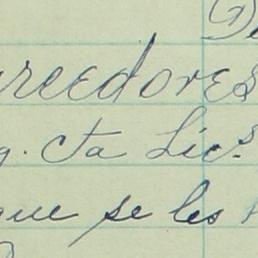 reedores
g. cta Lics.
que se les